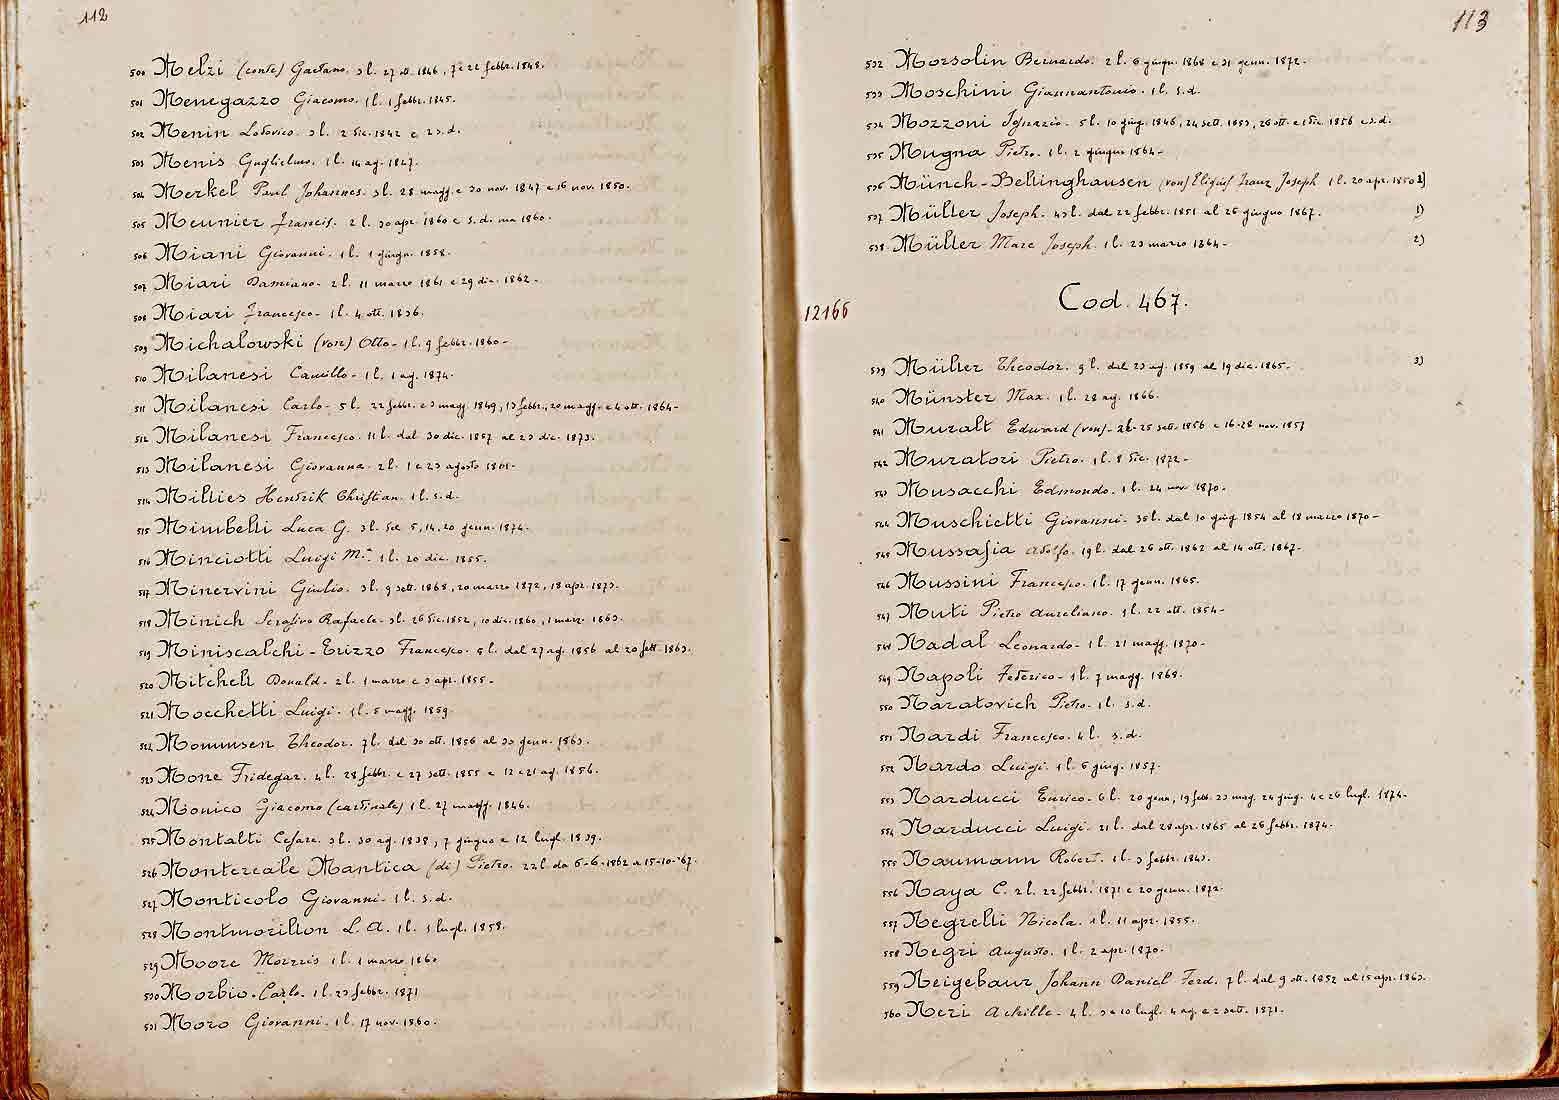 112
500 Melzi (conte) Gaetano. 3 l. 27 ott. 1846, 7 e 22 febbr. 1848.
501 Menegazzo Giacomo. 1 l. 1 febbr. 1845.
502 Menin Lodovico. 3 l. 2 dic. 1842 e 2 s.d.
503 Menis Guglielmo. 1 l. 14 ag. 1847.
504 Merkel Paul Johannes. 3 l. 28 magg. e 30 nov. 1847 e 16 nov. 1850.
505 Meunier Francis. 2 l. 30 apr. 1860 e s.d. ma 1860.
506 Miani Giovanni. 1 l. 1 giugn. 1858.
507 Miari Damiano. 2 l. 11 marzo 1861 e 29 dic. 1862.
508 Miari Francesco. 1 l. 4 ott. 1836.
509 Michalowski (von) Otto. 1 l. 9 febbr. 1860.
510 Milanesi Camillo. 1 l. 1 ag. 1874.
511 Milanesi Carlo. 5 l. 22 febbr. e 3 magg. 1849, 13 febbr., 20 magg. e 4 ott. 1864.
512 Milanesi Francesco. 11 l. dal 30 dic. 1857 al 23 dic. 1873.
513 Milanesi Giovanna. 2 l. 1 e 23 agosto 1861.
514 Millies Hendrik Christian. 1 l. s.d.
515 Mimbelli Luca G. 3 l. del 5, 14, 20 genn. 1874.
516 Minciotti Luigi M.ª 1 l. 20 dic. 1855.
517 Minervini Giulio. 3 l. 9 sett. 1868, 20 marzo 1872, 18 apr. 1873.
518 Minich Serafino Rafaele. 3 l. 26 dic. 1852, 10 dic. 1860, 1 marzo 1863.
519 Miniscalchi-Erizzo Francesco. 5 l. dal 27 ag. 1856 al 20 sett. 1863.
520 Mitchell Donald. 2 l. 1 marzo e 3 apr. 1855.
521 Mocchetti Luigi. 1 l. 5 magg. 1859.
522 Mommsen Theodor. 7 l. dal 30 ott. 1856 al 30 genn. 1863.
523 Mone Fridegar. 4 l. 28 febbr. e 27 sett. 1855 e 12 e 21 ag. 1856.
524 Monico Giacomo (cardinale) 1 l. 27 magg. 1846.
525 Montalti Cesare. 3 l. 30 ag. 1838, 7 giugno e 12 lugl. 1839.
526 Montereale Mantica (di) Pietro. 22 l. da 6-6-1862 a 15-10-'67.
527 Monticolo Giovanni. 1 l. s.d.
528 Montmorillon L. A. 1 l. 1 lugl. 1858.
529 Moore Morris 1 l. 1 marzo 1860
530 Morbio. Carlo. 1 l. 23 febbr. 1871
531 Moro Giovanni. 1 l. 17 nov. 1860.
113
532 Morsolin Bernardo. 2 l. 6 giugn. 1868 e 31 genn. 1872.
533 Moschini Giannantonio. 1 l. s.d.
534 Mozzoni Ignazio. 5 l. 10 giug. 1846, 24 sett. 1853, 26 ott. e 1 dic. 1856 e s.d.
535 Mugna Pietro. 1 l. 2 giugno 1864.
536 Münch-Bellinghausen (von) Eligius Franz Joseph 1 l. 20 apr. 1850
537 Müller Joseph. 43 l. dal 22 febbr. 1851 al 26 giugno 1867. 1)
538 Müller Marc Joseph. 1 l. 23 marzo 1864. 2)
12166 Cod. 467.
539 Müller Theodor. 9 l. dal 23 ag. 1859 al 19 dic. 1865. 3)
540 Münster Max. 1 l. 28 ag. 1866.
541 Muralt Edward (von). 25 sett. 1856 e 16-28 nov. 1857
542 Muratori Pietro. 1 l. 8 dic. 1872.
543 Musacchi Edmondo. 1 l. 24 nov. 1870.
544 Muschietti Giovanni. 35 l. dal 10 giug. 1854 al 18 marzo 1870.
545 Mussafia Adolfo. 19 l. dal 26 ott. 1862 al 14 ott. 1867.
546 Mussini Francesco. 1 l. 17 genn. 1865.
547 Muti Pietro Aureliano. 1 l. 22 ott. 1854.
548 Nadal Leonardo. 1 l. 21 magg. 1870.
549 Napoli Federico. 1 l. 7 magg. 1868.
550 Naratovich Pietro. 1 l. s.d.
551 Nardi Francesco. 4 l. s.d.
552 Nardo Luigi. 1 l. 6 giug. 1857.
553 Narducci Enrico. 6 l. 20 genn., 19 febb. 23 mag. 24 giug. 4 e 26 lugl. 1874.
554 Narducci Luigi. 21 l. dal 28 apr. 1865 al 26 febbr. 1874.
555 Naumann Robert. 1 l. 3 febbr. 1843.
556 Naya C. 2 l. 22 febbr. 1871 e 20 genn. 1872.
557 Negrelli Nicola. 1 l. 11 apr. 1855.
558 Negri Augusto. 1 l. 2 apr. 1870.
559 Neigebaur Johann Daniel Ferd. 7 l. dal 9 ott. 1852 al 15 apr. 1863.
560 Neri Achille. 4 l. 3 e 10 lugl. 4 ag. e 2 sett. 1871.